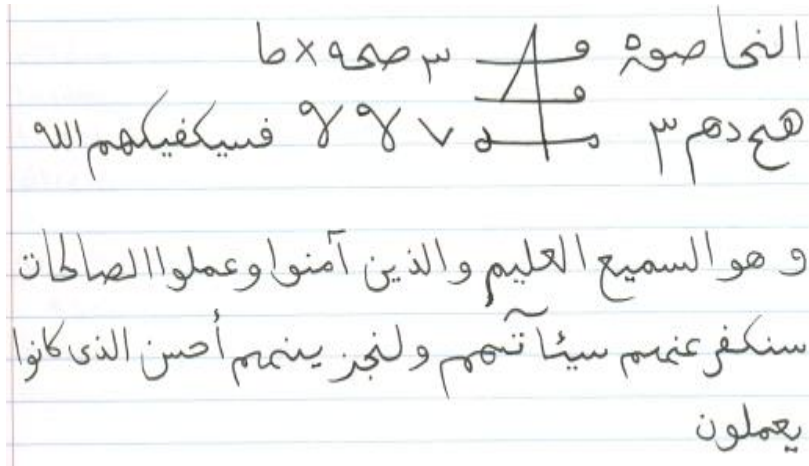 النحا صوة و ٣ صحه × ما
هج دهم ٣ ٧ ٧ ٧ فسيكفيكهم الله
و هو السميع العليم والذين آمنوا وعملوا الصالحات
سنكفر عنهم سيئآتهم ولنجزينهم أحسن الذى كانوا
يعملون